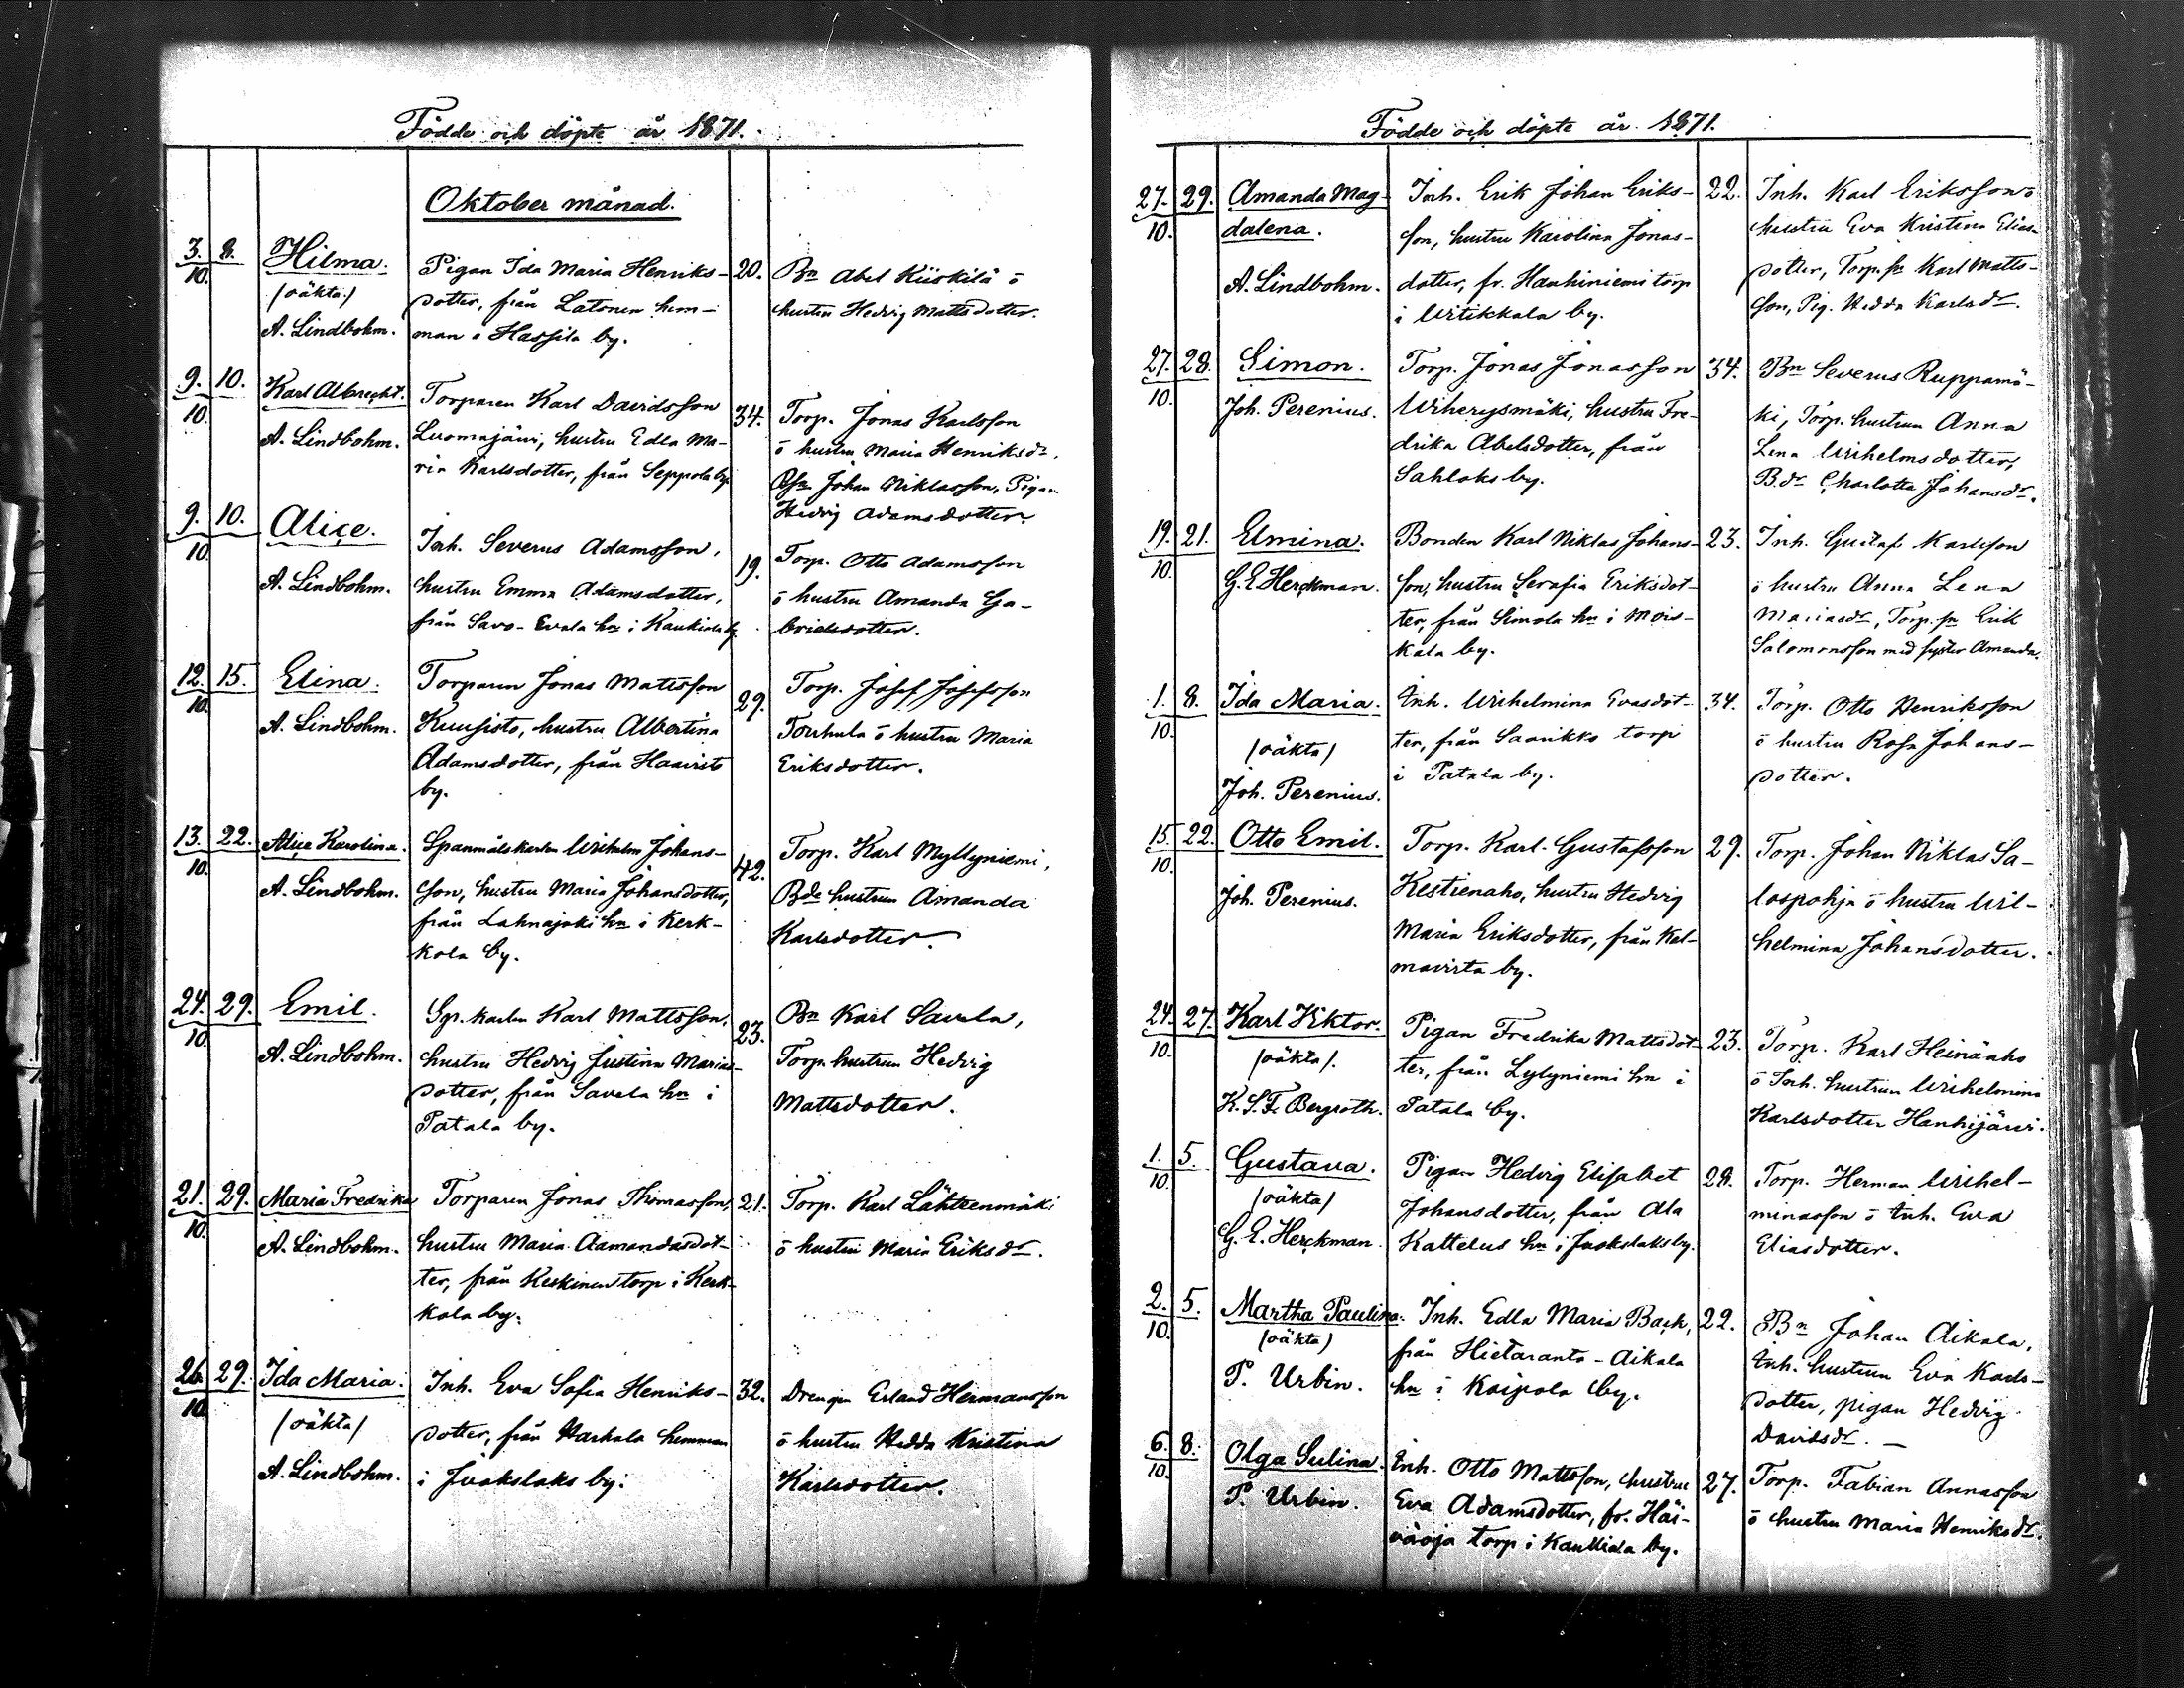 Födde och döpte år 1871.
Oktober månad.
3. 8. Hilma. Pigan Ida Maria Henriks- 20. Bn Abel Kiiskilä o
10. (oäkta) dotter, från Latonen hem- hustru Hedvig Mattsdotter.
A. Lindbohm. man i Hassila by.
9. 10. Karl Albrecht. Torparen Karl Davidsson 34. Torp. Jonas Karlsson
10. A. Lindbohm. Luomajärvi, hustru Edla Ma- o hustru Maria Henriksdr.
ria Karlsdotter, från Seppola by. Johan Niklasson, Pigan
Hedvig Adamsdotter.
9. 10. Alice. Inh. Severus Adamsson, 19. Torp. Otto Adamsson
10. A. Lindbohm. hustru Emma Adamsdotter, o hustru Amanda Ga-
från Savo-Evala hn i Kaukiala by. brielsdotter.
12. 15. Elina. Torparen Jonas Mattsson 29. Torp. Josef Josefsson
10. A. Lindbohm. Kuusisto, hustru Albertina Tourhula o hustru Maria
Adamsdotter, från Haavisto Eriksdotter.
by.
13. 22. Alice Karolina. Spanmålskarlen Wilhelm Johans- 42. Torp. Karl Myllyniemi,
10. A. Lindbohm. son, hustru Maria Johansdotter, Bde hustrun Amanda
från Lahnajoki hn i Kerk- Karlsdotter.
kola by.
24. 29. Emil. Sp. karlen Karl Mattsson, 23. Bn Karl Savela,
10. A. Lindbohm. hustru Hedvig Justina Marias- Torp. hustrun Hedvig
dotter, från Savela hn i Mattsdotter.
Patala by.
21. 29. Maria Fredrika Torparen Jonas Thomasson, 21. Torp. Karl Lähteenmäki
10. A. Lindbohm. hustru Maria Aamandasdot- o hustru Maria Eriksdr.
ter, från Keskinen torp i Kerk-
kola by.
26. 29. Ida Maria. Inh. Eva Sofia Henriks- 32. Drengen Erland Hermansson
10. (oäkta) dotter, från Harkala hemman o hustru Hedda Kristina
A. Lindbohm. i Juokslaks by. Karlsdotter.
Födde och döpte år 1871.
27. 29. Amanda Mag- Inh. Erik Johan Eriks- 22. Inh. Karl Eriksson o
10. dalena. son, hustru Karolina Jonas- hustru Eva Kristina Elias-
A. Lindbohm. dotter, fr. Hanhiniemi torp dotter, Torp. sn Karl Matts-
i Uitikkala by. son, Pig. Hedda Karlsdr.
27. 28. Simon. Torp. Jonas Jonasson 34. Bn Severus Ruppamä-
10. Joh. Perenius. Wiherysmäki, hustru Fre- ki, Torp. hustrun Anna
drika Abelsdotter, från Lena Wilhelmsdotter,
Sahloks by. B.dr Charlotta Johansdr.
19. 21. Elmina. Bonden Karl Niklas Johans- 23. Inh. Gustaf Karlsson
10. G. E. Herckman. son, hustru Serafia Eriksdot- o hustru Anna Lena
ter, från Simola hn i Mois- Mariasdr, Torp. sn Erik
kala by. Salomonsson med syster Amanda.
1. 8. Ida Maria. Inh. Wilhelmina Evasdot- 34. Torp. Otto Henriksson
10. (oäkta) ter, från Saarikko torp o hustru Rosa Johans-
Joh. Perenius. i Patala by. dotter.
15. 22. Otto Emil. Torp. Karl Gustafsson 29. Torp. Johan Niklas Sa-
10. Joh. Perenius. Kestienaho, hustru Hedvig lospohja o hustru Wil-
Maria Eriksdotter, från Kal- helmina Johansdotter.
mavirta by.
24. 27. Karl Viktor. Pigan Fredrika Mattsdot- 23. Torp. Karl Heinäaho
10. (oäkta). ter, från Lylyniemi hn i o Inh. hustrun Wilhelmina
K. S. F. Bergroth. Patala by. Karlsdotter Hanhijärvi.
1. 5. Gustava. Pigan Hedvig Elisabet 28. Torp. Herman Wilhel-
10. (oäkta) Johansdotter, från Ala minasson o Inh. Eva
G. E. Herckman. Kattelus hn i Juokslaks by. Eliasdotter.
2. 5. Martha Paulina. Inh. Edla Maria Back, 22. Bn Johan Aikala,
10. (oäkta) från Hietaranta-Aikala Inh. hustrun Eva Karls-
P. Urbin. hn i Kaipola by. dotter, pigan Hedvig
Davidsdr. —
6. 8. Olga Sulina. Inh. Otto Mattsson, hustru 27. Torp. Fabian Annasson
10. P. Urbin. Eva Adamsdotter, fr. Häi- o hustru Maria Henriksdr.
väoja torp i Kaukiala by.